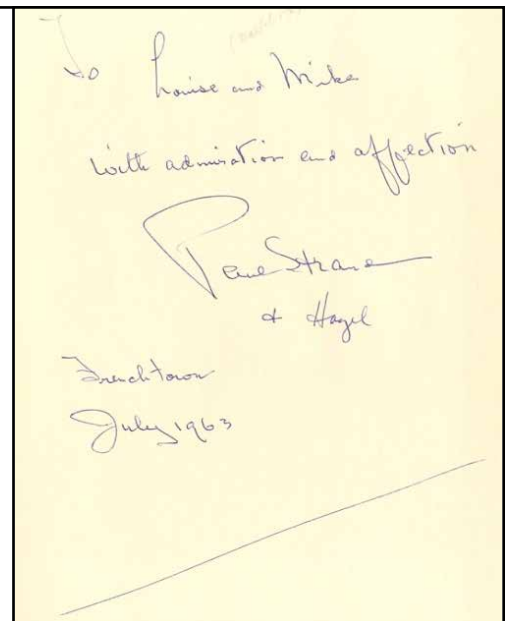 To Louise and Mike
with admiration and affection
Paul Strand
& Hazel
Frenchtown
July 1963